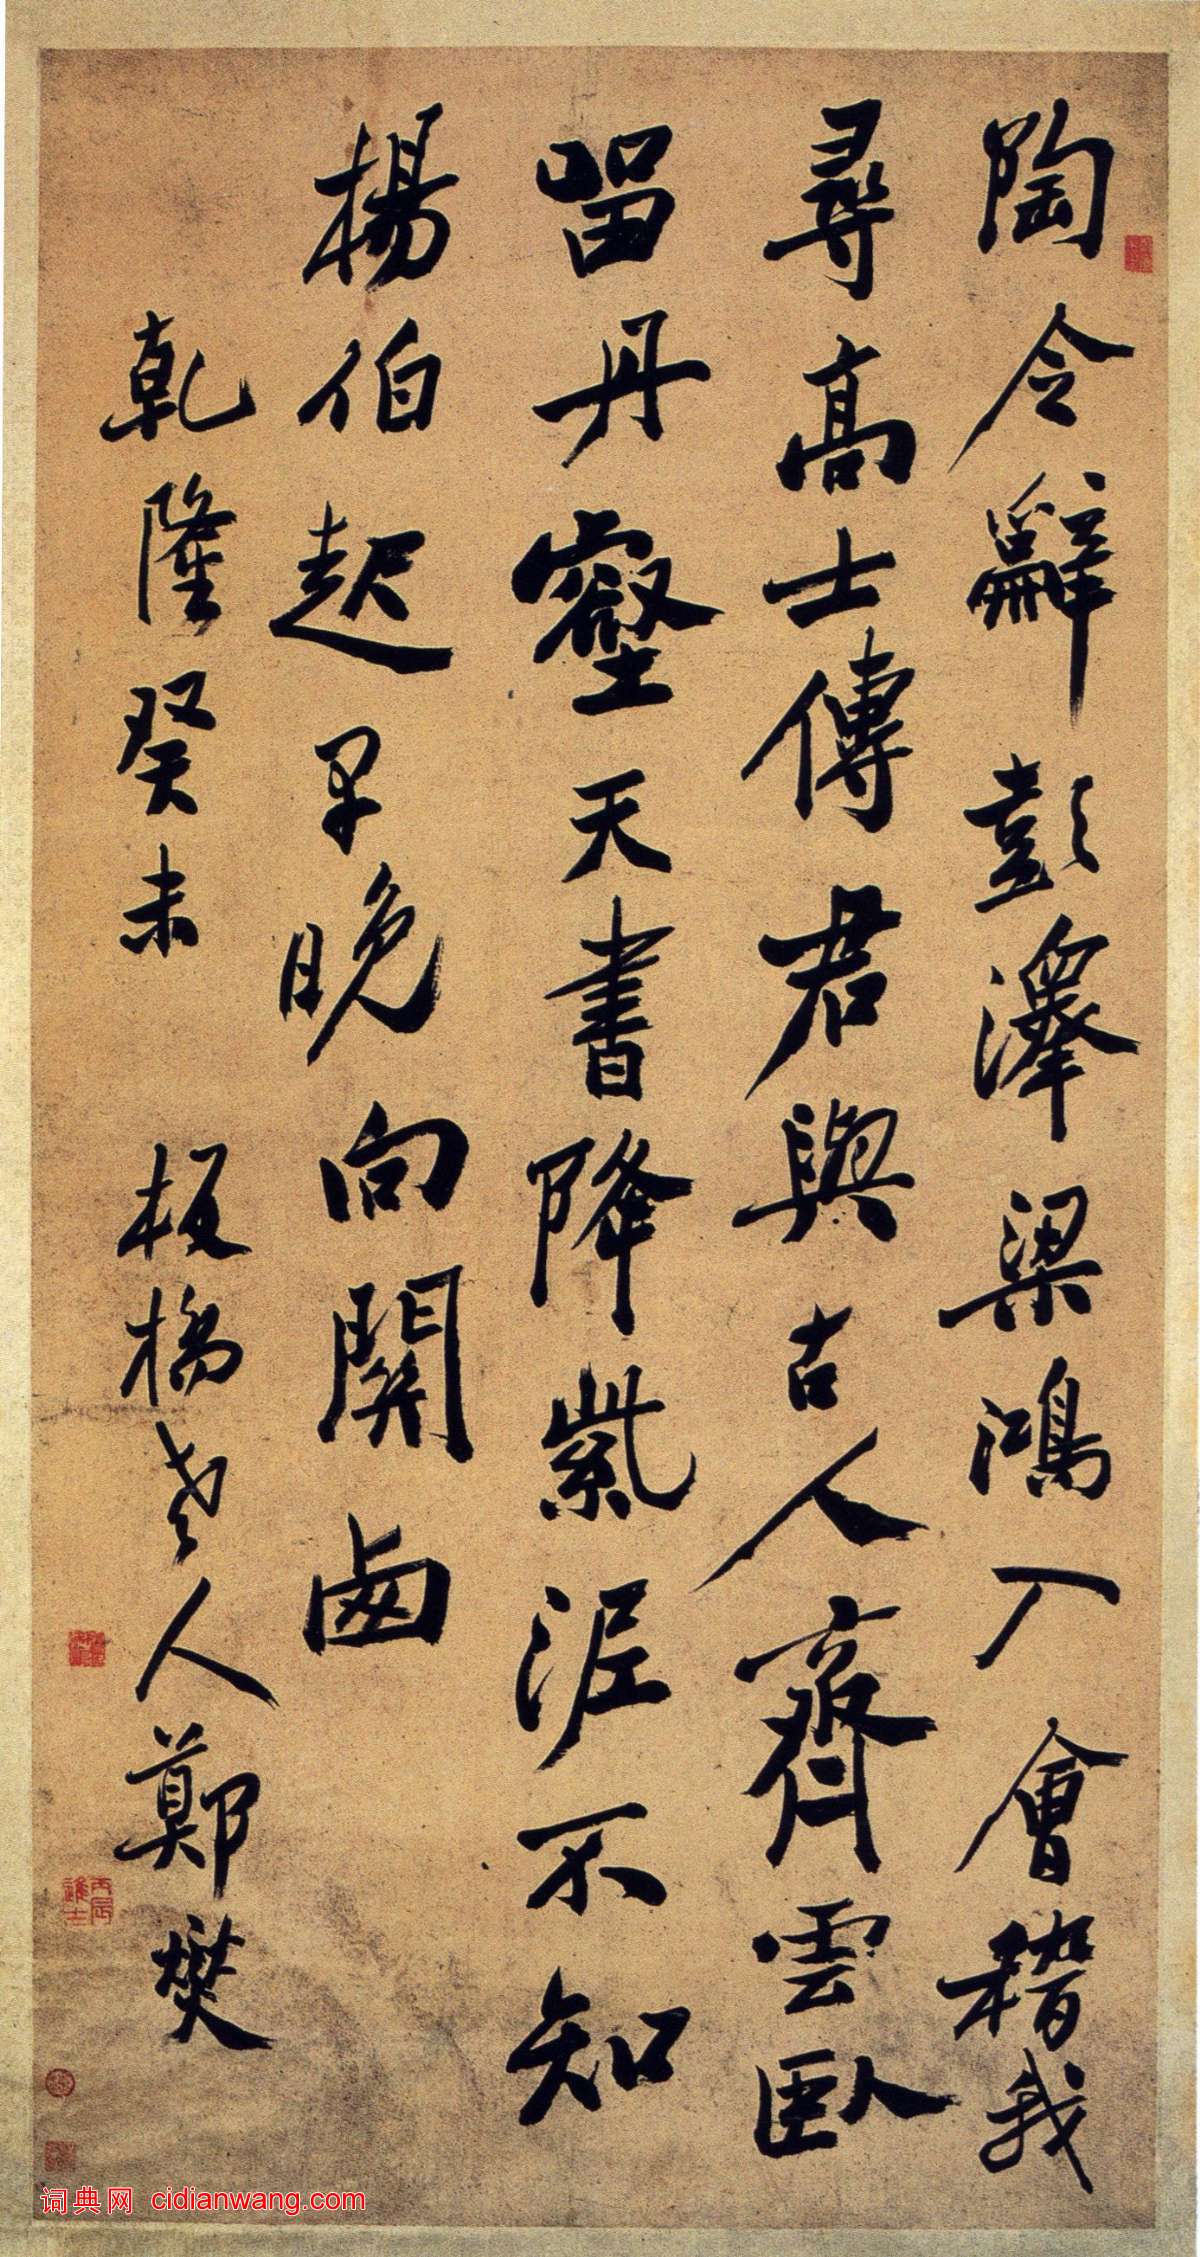 陶令辭彭澤梁鴻入會稽我
尋高士傳君與古人齊雲臥
留丹壑天書降紫泥不知
楊伯起早晚向關西
乾隆癸未 板橋老人鄭燮
丙辰進士
词典网 cidianwang.com